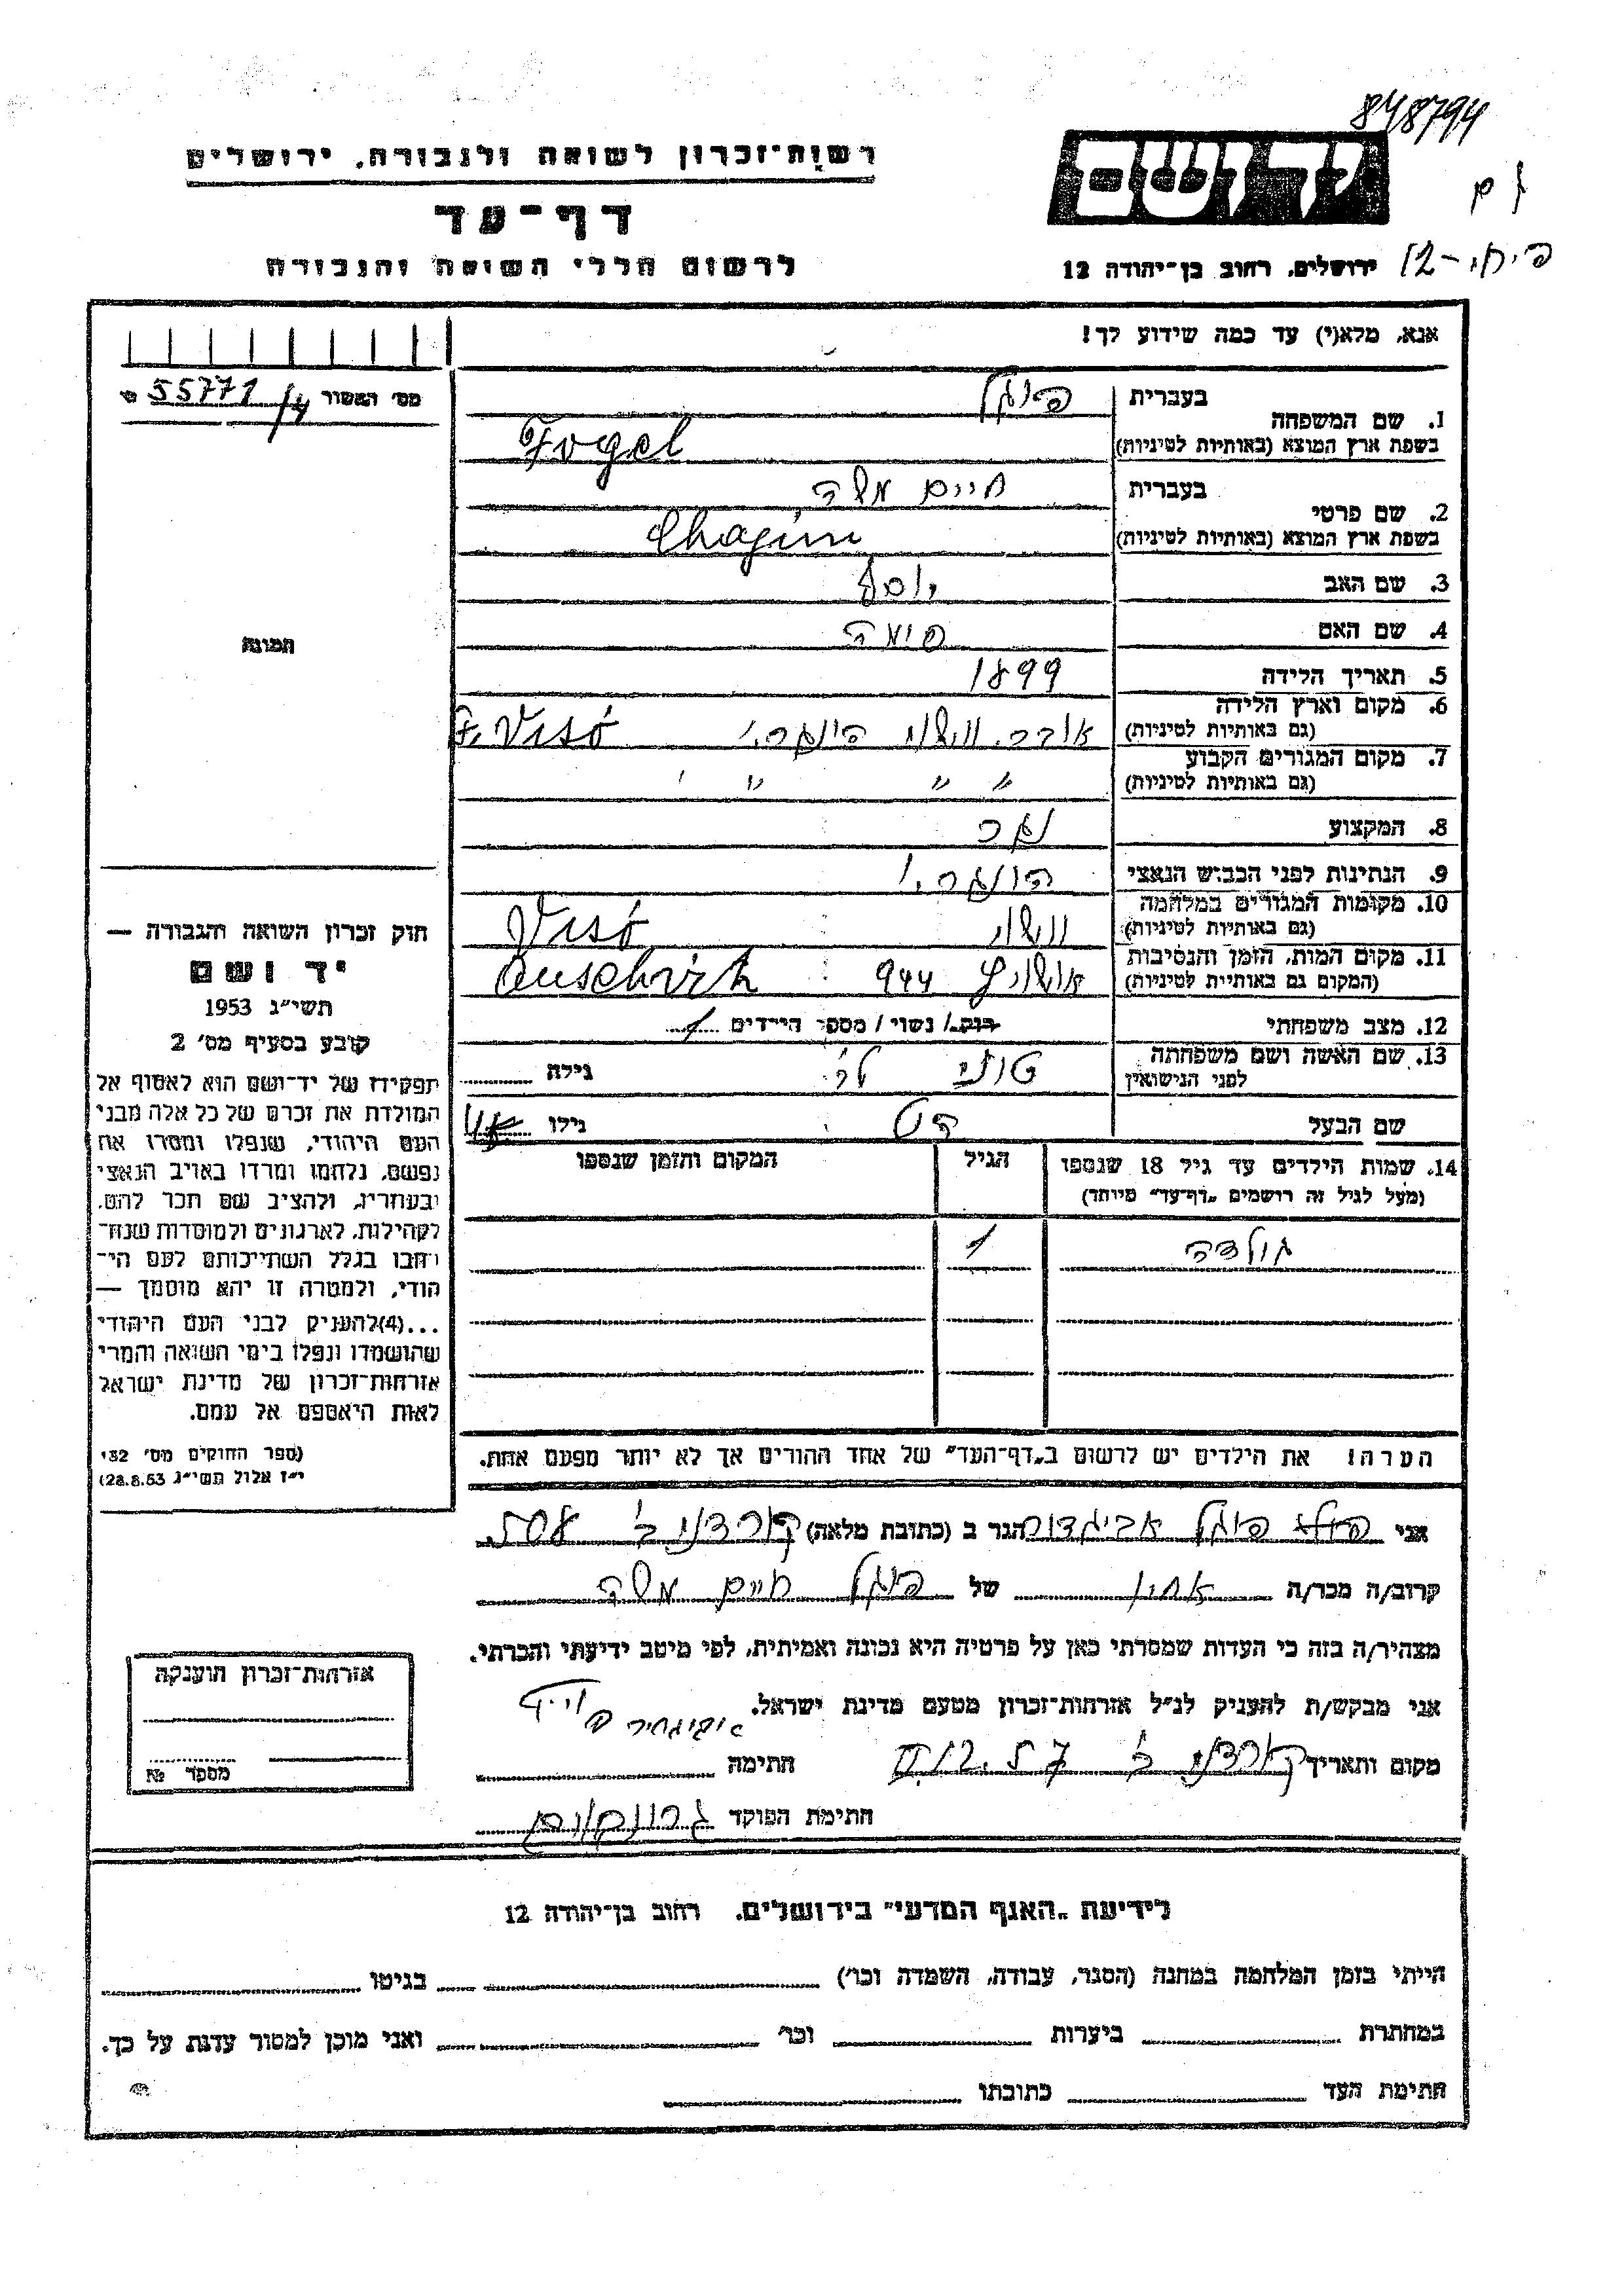 848794
רשות-זכרון לשואה ולגבורה, ירושלים
דף-עד
לרשום חללי השואה והגבורה
ידושם
ירושלים, רחוב בן-יהודה 12
אנא, מלא(י) עד כמה שידוע לך!
מס' האשור 55771/4
תמונה
1. שם המשפחה
בעברית פוגל
בשפת ארץ המוצא (באותיות לטיניות) Fogel
2. שם פרטי
בעברית חיים משה
בשפת ארץ המוצא (באותיות לטיניות) Chajim
3. שם האב יוסף
4. שם האם
5. תאריך הלידה 1899
6. מקום וארץ הלידה
(גם באותיות לטיניות) אובר. ווישו הונגרי F. Visó
7. מקום המגורים הקבוע
(גם באותיות לטיניות) " " "
8. המקצוע
9. הנתינות לפני הכבוש הנאצי הונגרי
10. מקומות המגורים במלחמה
(גם באותיות לטיניות) ווישו Visó
11. מקום המות, הזמן והנסיבות
(המקום גם באותיות לטיניות) אושוויץ 944 Auschvitz
12. מצב משפחתי רווק / נשוי / מספר הילדים 1
13. שם האשה ושם משפחתה
לפני הנישואין גילה
שם הבעל גילו
14. שמות הילדים עד גיל 18 שנספו
(מעל לגיל זה רושמים "דף-עד" מיוחד)
הגיל
המקום והזמן שנספו
גולדה 1
הערה! את הילדים יש לרשום ב"דף-העד" של אחד ההורים אך לא יותר מפעם אחת.
חוק זכרון השואה והגבורה —
יד ושם
תשי"ג 1953
קובע בסעיף מס' 2
תפקידו של יד-ושם הוא לאסוף אל
המולדת את זכרם של כל אלה מבני
העם היהודי, שנפלו ומסרו את
נפשם, נלחמו ומרדו באויב הנאצי
ובעוזריו, ולהציב שם וזכר להם,
לקהילות, לארגונים ולמוסדות שנח-
רבו בגלל השתייכותם לעם הי-
הודי, ולמטרה זו יהא מוסמך —
...(4)להעניק לבני העם היהודי
שהושמדו ונפלו בימי השואה והמרי
אזרחות-זכרון של מדינת ישראל
לאות היאספם אל עמם.
(ספר החוקים מס' 132
י"ז אלול תשי"ג 28.8.53)
אני פוגל אביגדור הגר ב (כתובת מלאה) קורדני ב'
קרוב/ה מכר/ה אחיו של פוגל חיים משה
מצהיר/ה בזה כי העדות שמסרתי כאן על פרטיה היא נכונה ואמיתית, לפי מיטב ידיעתי והכרתי.
אני מבקש/ת להעניק לנ"ל אזרחות-זכרון מטעם מדינת ישראל.
מקום ותאריך קורדני ב' חתימה
חתימת הפוקד
אזרחות-זכרון הוענקה
מספר №
לידיעת "האגף המדעי" בירושלים, רחוב בן-יהודה 12
הייתי בזמן המלחמה במחנה (הסגר, עבודה, השמדה וכו') בגיטו
במחתרת ביערות וכו' ואני מוכן למסור עדות על כך.
חתימת העד כתובתו